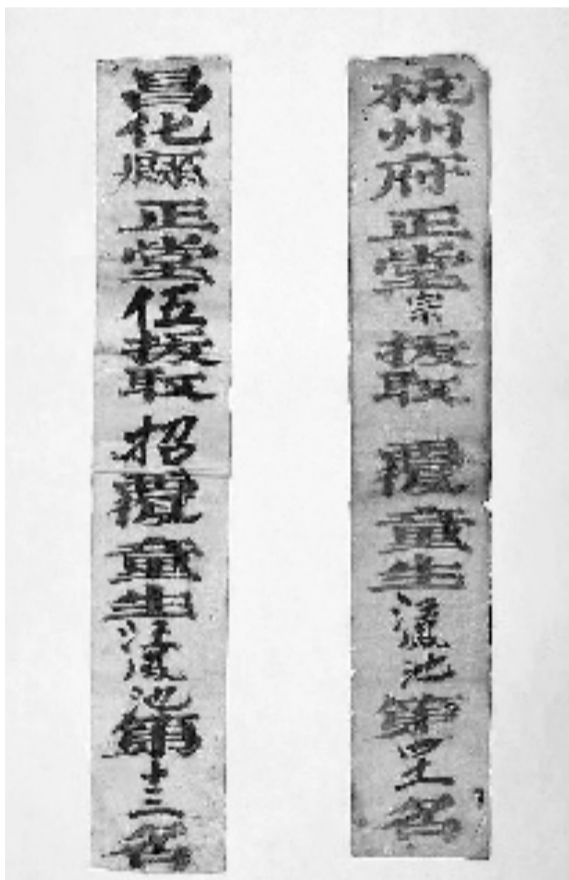 杭州府正堂宗拔取覆童生汪鳳池第名
昌化縣正堂伍拔取招覆童生汪鳳池第十三名